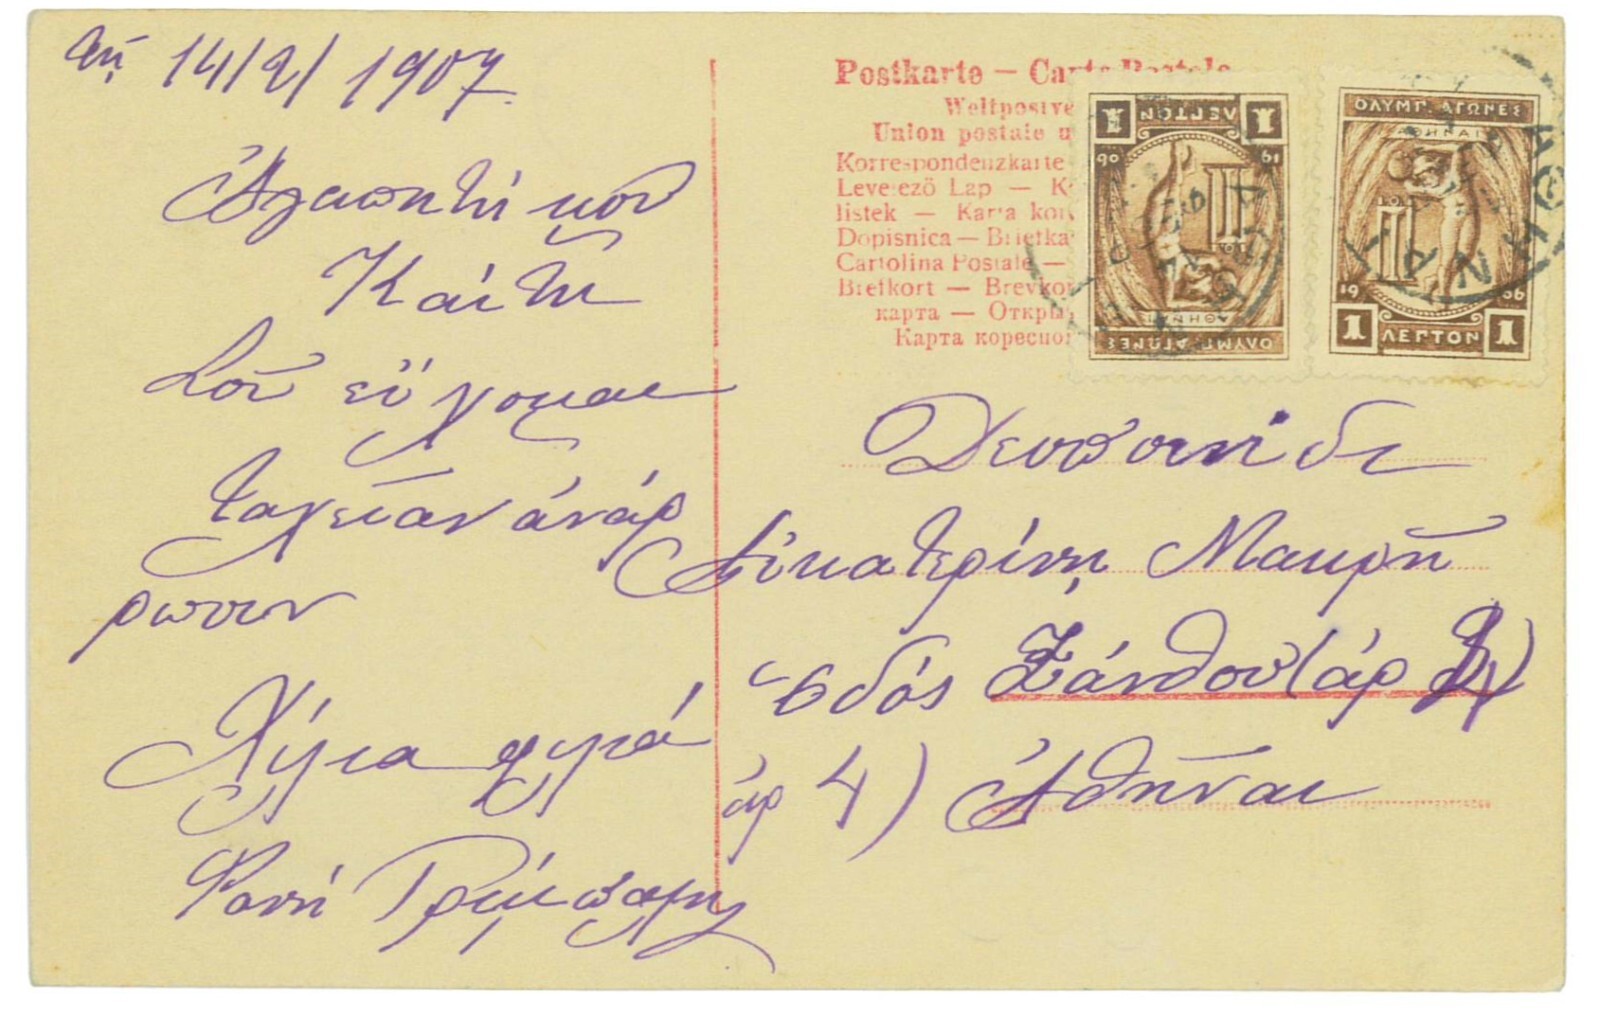 τῇ 14/2/1907
Ἀγαπητή μου
Καίτη
Σοῦ εὔχομαι
ταχείαν ἀνάρ
ρωσιν
Χίλια φιλιά
Φανή
Postkarte – Carte Postale
Weltpostve
Union postale u
Korrespondenzkarte
Levelező Lap — K
listek — Karta kor
Dopisnica — Briefka
Cartolina Postale —
Brefkort — Brevkor
карта — Откры
Карта кореспон
1 ΛΕΠΤΟΝ 1
19 06
ΑΘΗΝΑΙ
ΟΛΥΜΠ. ΑΓΩΝΕΣ
ΟΛΥΜΠ. ΑΓΩΝΕΣ
ΑΘΗΝΑΙ
19 06
1 ΛΕΠΤΟΝ 1
Δεσποινίδι
Αἰκατερίνῃ Μακρῆ
ὁδός Ξάνθου (ἀρ
ἀρ 4) Ἀθῆναι